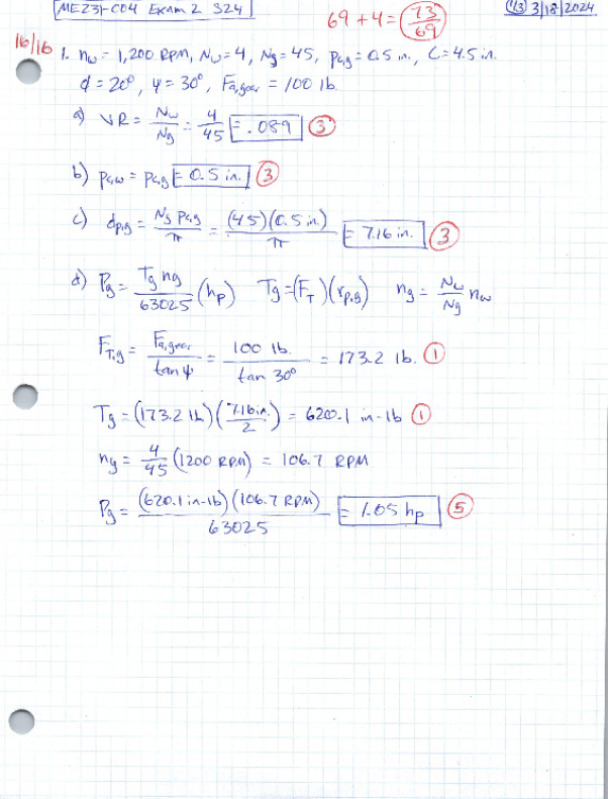 ME231-C04 Exam 2 S24
69 + 4 = 73/69
(1/3) 3/18/2024
16/16
1. nw = 1,200 RPM, Nw = 4, Ng = 45, pc,g = 0.5 in., C = 4.5 in.
ϕ = 20°, ψ = 30°, Fa,gear = 100 lb
a) VR = Nw/Ng = 4/45 = .089 (3)
b) pa,w = pc,g = 0.5 in. (3)
c) dp,g = Ng pc,g/π = (45)(0.5 in.)/π = 7.16 in. (3)
d) Pg = Tg ng/63025 (hp) Tg = (FT)(rp,g) ng = Nw/Ng nw
FT,g = Fa,gear/tan ψ = 100 lb./tan 30° = 173.2 lb. (1)
Tg = (173.2 lb)(7.16 in./2) = 620.1 in-lb (1)
ng = 4/45 (1200 RPM) = 106.7 RPM
Pg = (620.1 in-lb)(106.7 RPM)/63025 = 1.05 hp (5)